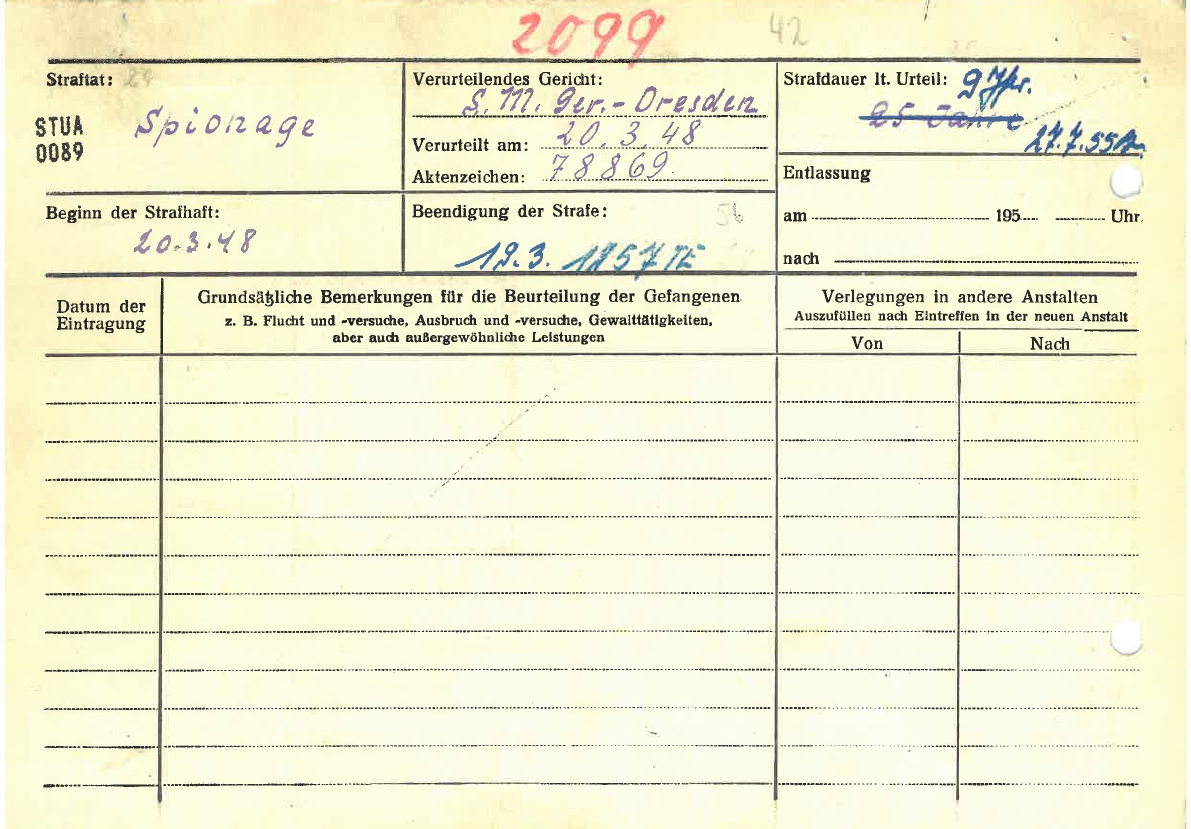 2099 42
Straftat: 24
STUA
0089
Spionage
Verurteilendes Gericht:
S. M. Ger. - Dresden
Verurteilt am: 20. 3. 48
Aktenzeichen: 78869.
Strafdauer lt. Urteil: 9 Jhr.
25 Jahre
27.7.55
Entlassung
am 195 Uhr
nach
Beginn der Strafhaft:
20.3.48
Beendigung der Strafe: 56
19.3. 1957 TE
Datum der
Eintragung
Grundsätzliche Bemerkungen für die Beurteilung der Gefangenen
z. B. Flucht und -versuche, Ausbruch und -versuche, Gewalttätigkeiten,
aber auch außergewöhnliche Leistungen
Verlegungen in andere Anstalten
Auszufüllen nach Eintreffen in der neuen Anstalt
Von Nach